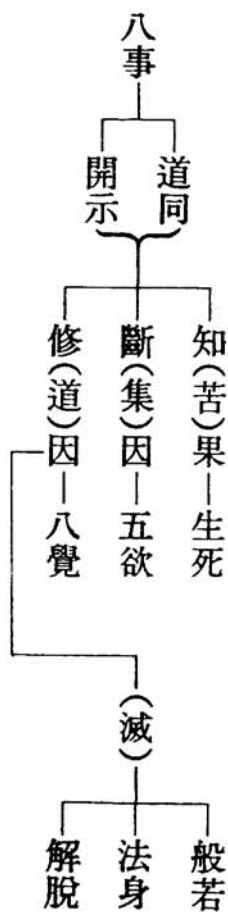 八事
道同
開示
知(苦)果—生死
斷(集)因—五欲
修(道)因—八覺
(滅)
般若
法身
解脫